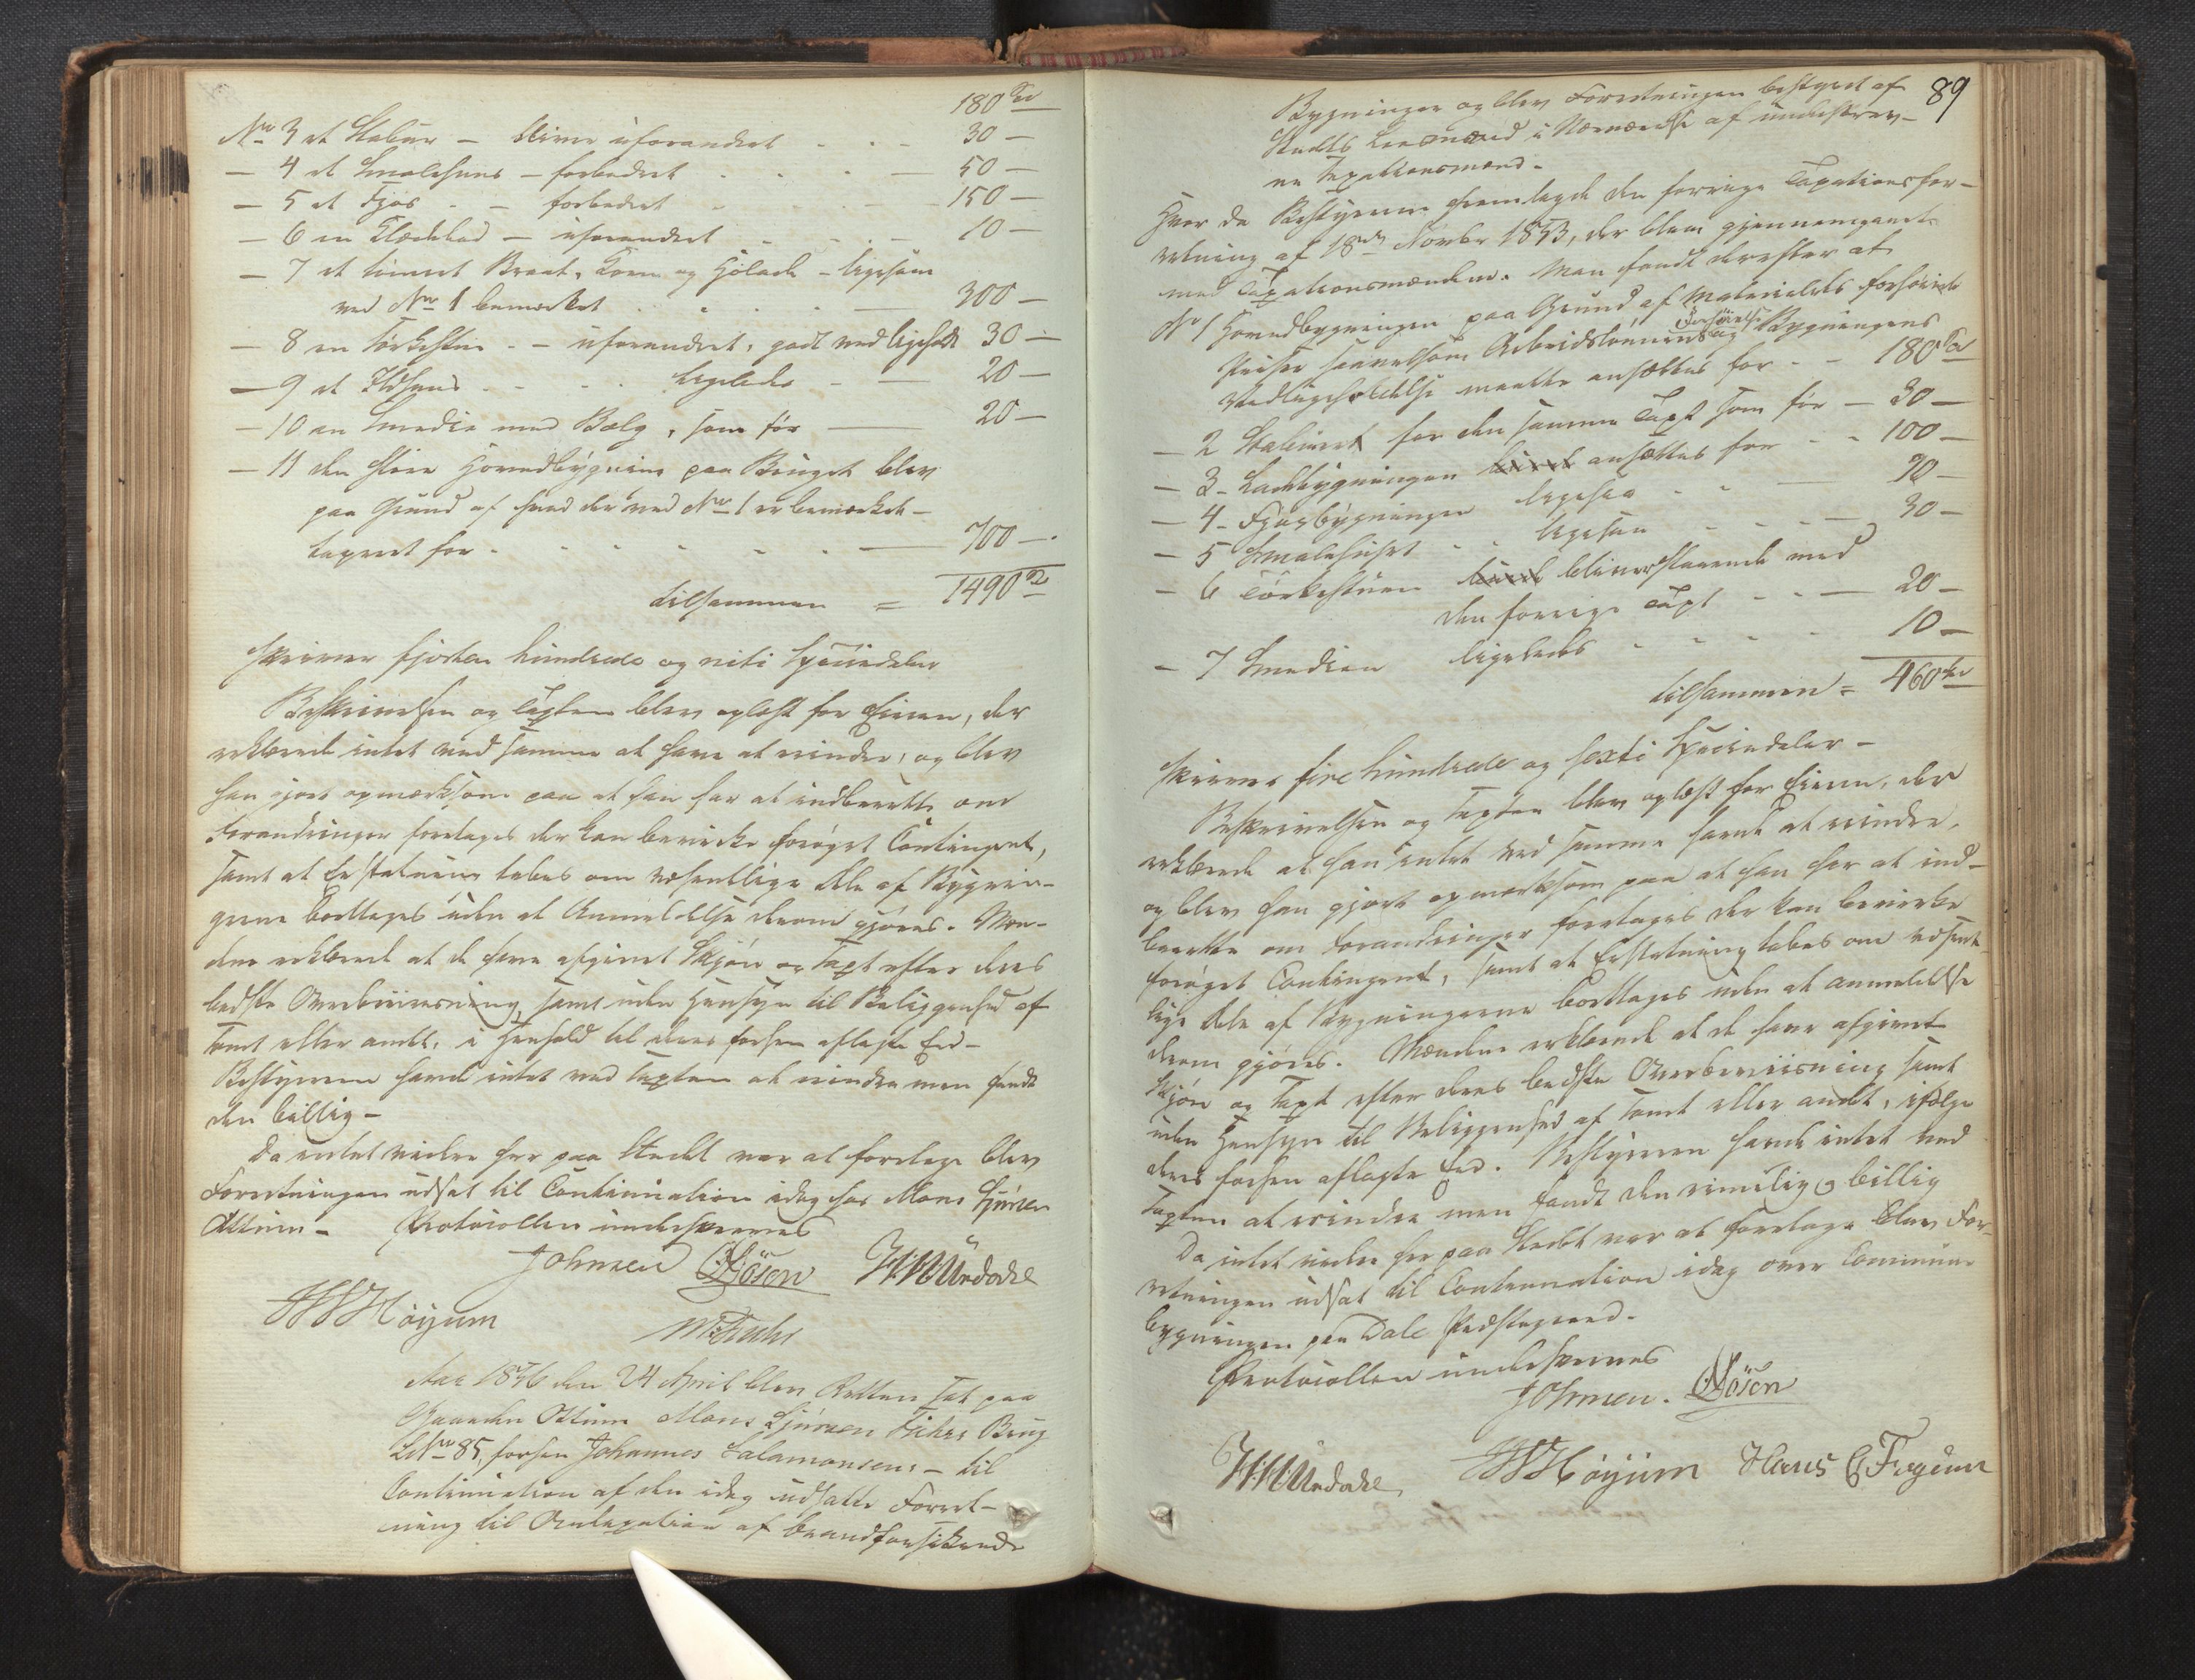 180 Sp
No 3 et Stabur – bliver uforandret - - - 30 –
– 4 et Smalehuus – forbedret - - - 50 –
– 5 et Fjøs - – forbedret - - - 150 –
– 6 en Skub – uforandret - - - 10 –
– 7 et tømret Korn og Høelade – ligesom
ved No 1 bemærket - - - 300 –
– 8 en Tørkestue - – uforandret, godt vedligeholdt 30 –
– 9 et Ildhuus - - - ligeledes - – 20 –
– 10 en Smedie med Bælg, som før – 20 –
– 11 den store Hovedbygning paa Bruget blev
paa Grund af hvad der ved No 1 er bemærket –
taxeret for - - - - - - 700 –
tilsammen = 1490 Sp
skriver fjorten hundrede og niti Speciedaler
Beskrivelsen og Taxten blev oplæst for Eieren, der
erklærede intet ved samme at have at erindre, og blev
han gjort opmærksom paa at han har at indberette om
Forandringer foretages der kan bevirke forøget Contingent,
samt at Erstatning tabes om væsentlige Dele af Bygnin-
gerne borttages uden at Anmeldelse derom gjøres. Mæn-
dene erklærede at de have afgivet Skjøn og Taxt efter deres
bedste Overbeviisning samt uden Hensyn til Beliggenhed af
Tomt eller andet, i Henhold til deres forhen aflagte Eed –
Bestyreren havde intet ved Taxten at erindre men fandt
den billig –
Da intet videre her paa Stedet var at foretage blev
Forretningen udsat til Continuation idag hos Mons Sjursen
Ottum – Protocollen underskrives
Johnsen OJösen H:N:Undadel
HHHöyum M:Kuhr
Aar 1856 den 24 April blev Retten sat paa
Gaarden Ottum Mons Sjursen Brug
L No 85, forhen Johannes Salamonsens – til
Continuation af den idag udsatte Forret-
ning til Omtaxation af brandforsikrede
89
Bygninger og blev Forretningen bestyret af
Stedets Lensmand i Nærværelse af underskrev-
ne Taxationsmænd –
Hvor da Bestyreren fremlagde den forrige Taxationsfor-
retning af 18de Novbr 1853, der blev gjennemgaaet
med Taxationsmændene. Man fandt derefter at
No 1 Hovedbygningen paa Grund af Materialets forhøiede
Priser saavelsom Arbeidslønnens Forhøielse og Bygningens
Vedligeholdelse maatte ansættes for - - 180 Sp
– 2 Staburet for den samme Taxt som før – 30 –
– 3 - Ladebygningen ansættes for - - 100 –
– 4 - Fjøsbygningen ligesaa - - – 90 –
– 5 Smalehuset - - ligesaa - - - – 30 –
– 6 Tørkestuen bliver staaende med
den forrige Taxt - - – 20 –
– 7 Smedien ligeledes - - - - 10 –
tilsammen = 460 Sp
skriver fire hundrede og sexti Speciedaler –
Beskrivelsen og Taxten blev oplæst for Eieren, der
erklærede at han intet ved samme havde at erindre,
og blev han gjort opmærksom paa at han har at ind-
berette om Forandringer foretages der kan bevirke
forøget Contingent, samt at Erstatning tabes om væsent-
lige Dele af Bygningerne borttages uden at Anmeldelse
derom gjøres. Mændene erklærede at de have afgivet
Skjøn og Taxt efter deres bedste Overbeviisning samt
uden Hensyn til Beliggenhed af Tomt eller andet, ifølge
deres forhen aflagte Eed. Bestyreren havde intet ved
Taxten at erindre men fandt den rimelig og billig
Da intet videre her paa Stedet var at foretage blev For-
retningen udsat til Continuation idag over Commune-
bygningen paa Dale Præstegaard –
Protocollen underskrives
Johnsen. OJösen
H:N:Undadel HHHöyum Hans